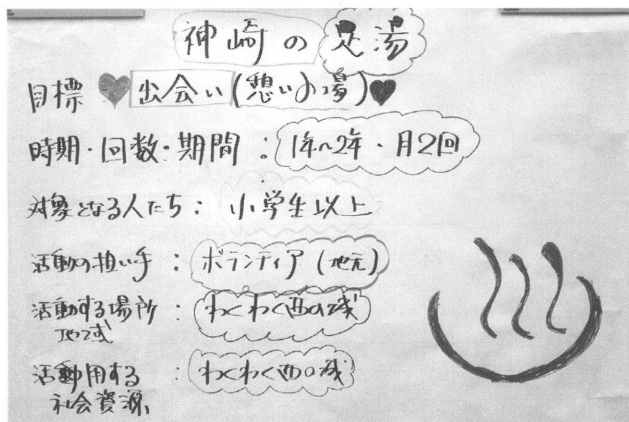 神崎の足湯
目標 ♥ 出会い(憩いの場)♥
時期・回数・期間 : 1年〜2年・月2回
対象となる人たち : 小学生以上
活動の担い手 : ボランティア(地元)
活動する場所 : わくわく西の
地域
活動用する : わくわく西の
社会資源